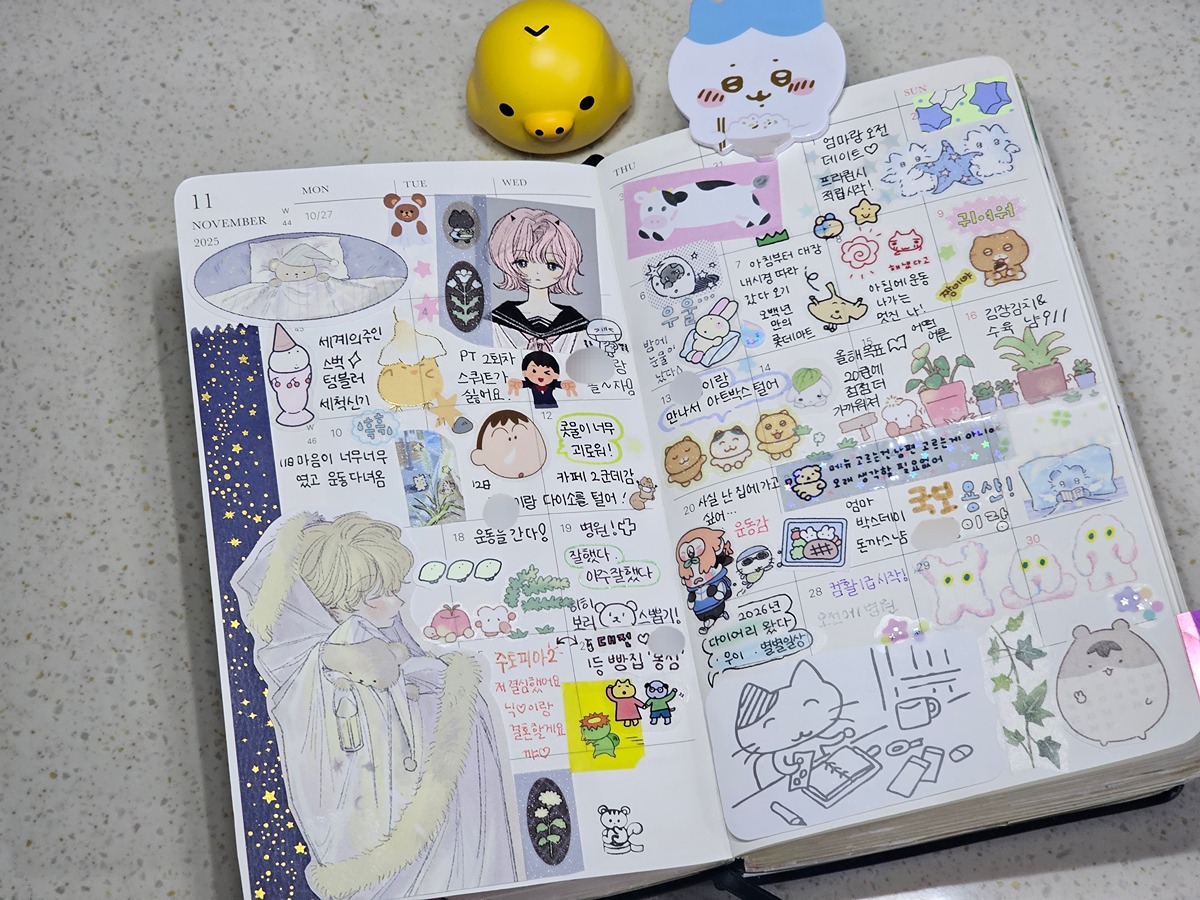 11
NOVEMBER
2025
MON
TUE
WED
W
44
10/27
4
세계의주인
스벅
텀블러
세척신기
PT 2회차
스쿼트가
싫어요..
W
46
10
흑흑
마음이 너무너무
였고 운동다녀옴
12
꽃물이 너무
괴로워!
카페 2군데감
이랑 다이소를 털어!
18
운동을간다!
19
병원!
잘했다
아주잘했다
히히
보리
스뽑기!
주토피아2
저 결심했어요
닉♡이랑
결혼할게요
꺄♡
1등 빵집
THU
SUN
31
엄마랑 오전
데이트♡
프리퀀시
적립시작!
6
우울...
밤에
눈물이
났다
7
아침부터 대장
내시경 따라
갔다 오기
오백년
만의
롯데마트
해냈다고
아침에 운동
나가는
멋진 나!
어떤
어른
9
귀여워
짱이야
13
이랑
만나서 아트박스 털어
14
15
올해목표
20킬에
점점 더
가까워져
16
김장김치&
수육 냠911
메뉴 고르는건 남편 고르는게 아니야
오래 생각할 필요없어
20
사실 난 집에 가고
싶어...
운동감
엄마
박스데이
돈가스냠
국보
용산!
이랑
2026년
다이어리 왔다
우이 별별일상
28
컴활 1급 시작!
오전에 병원
29
30